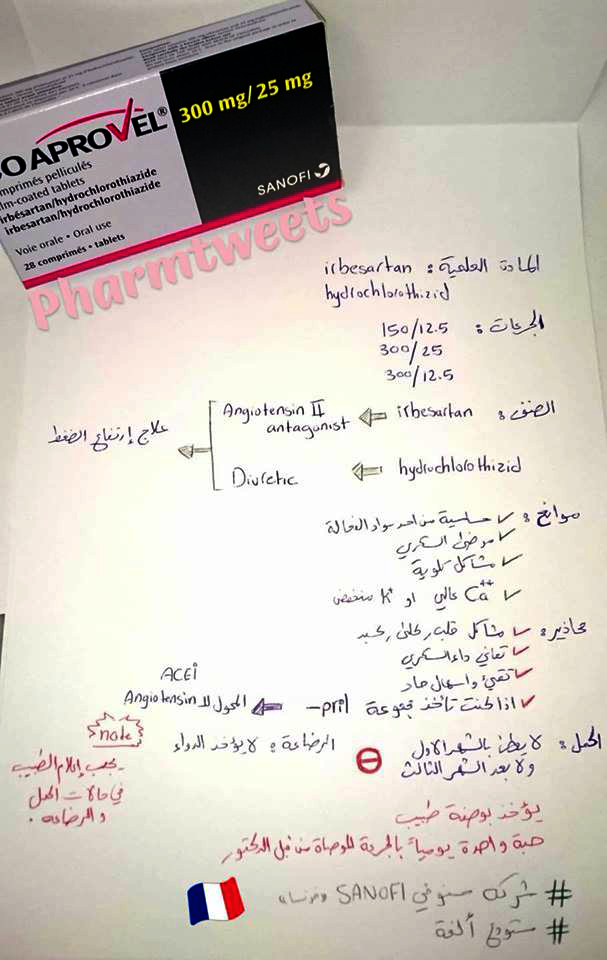 OAPROVEL®
300 mg/25 mg
mprimés pelliculés
lm-coated tablets
irbésartan/hydrochlorothiazide
irbesartan/hydrochlorothiazide
SANOFI
Voie orale • Oral use
28 comprimés • tablets
Pharmtweets
المادة العلمية : irbesartan
hydrochlorothizid
الجرعات : 150/12.5
300/25
300/12.5
الصنف : irbesartan
Angiotensin II antagonist
علاج إرتفاع الضغط
hydrochlorothizid
Diuretic
موانع : ✓ حساسية من احد مواد الفعالة
✓ مرضى السكري
✓ مشاكل كلوية
✓ Ca++ عالي او K+ منخفض
محاذير : ✓ مشاكل قلب، كلى، كبد
✓ تعاني داء السكري
✓ تقيئ واسهال حاد
✓ اذا كنت تأخذ مجموعة pril–
ACEi
المحول للـ Angiotensin
الحمل : لا يعطى بالشهر الاول
ولا بعد الشهر الثالث
الرضاعة : لا يؤخذ الدواء
note
يجب إعلام الطبيب
في حالات الحمل
و الرضاعة .
يؤخذ بوصفة طبيب
حبة واحدة يومياً بالجرعة الموصاة من قبل الدكتور
# شركة سنوفي SANOFI فرنسا
# مستودع ألفة